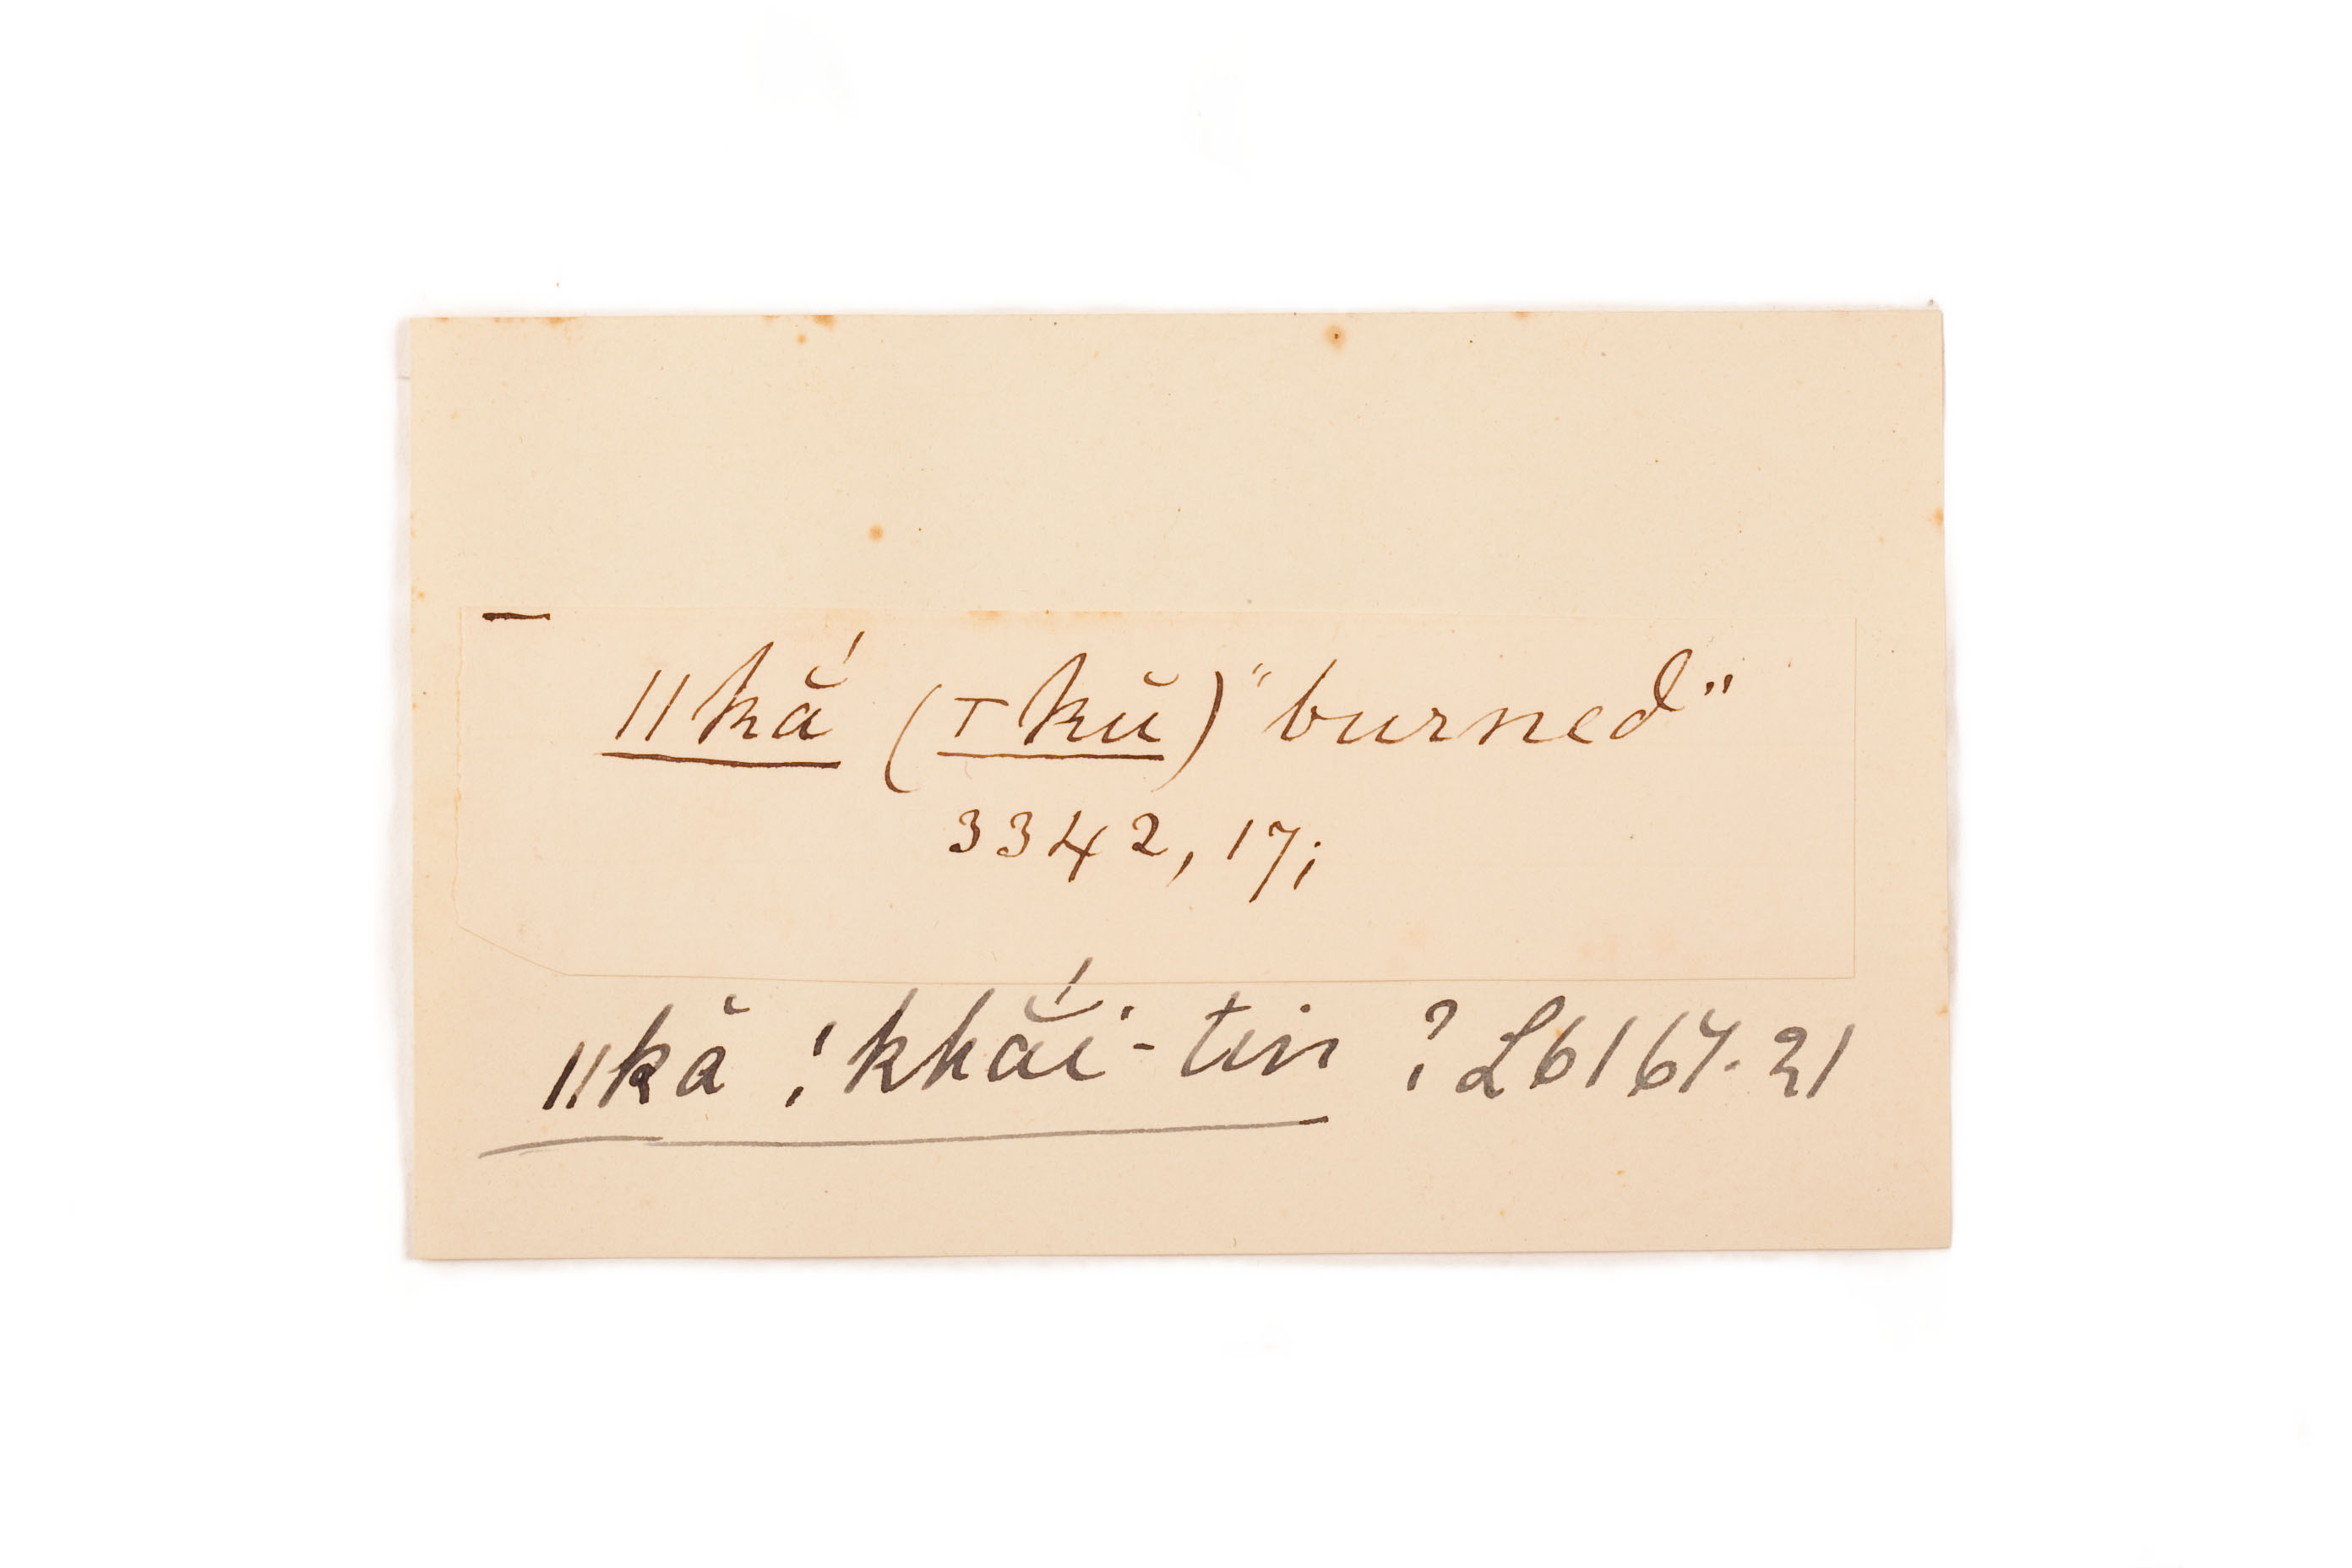 ǁkắ (⊤ kŭ) "burned"
3342, 17;
ǁkă !khắi-tin ? L6167.21